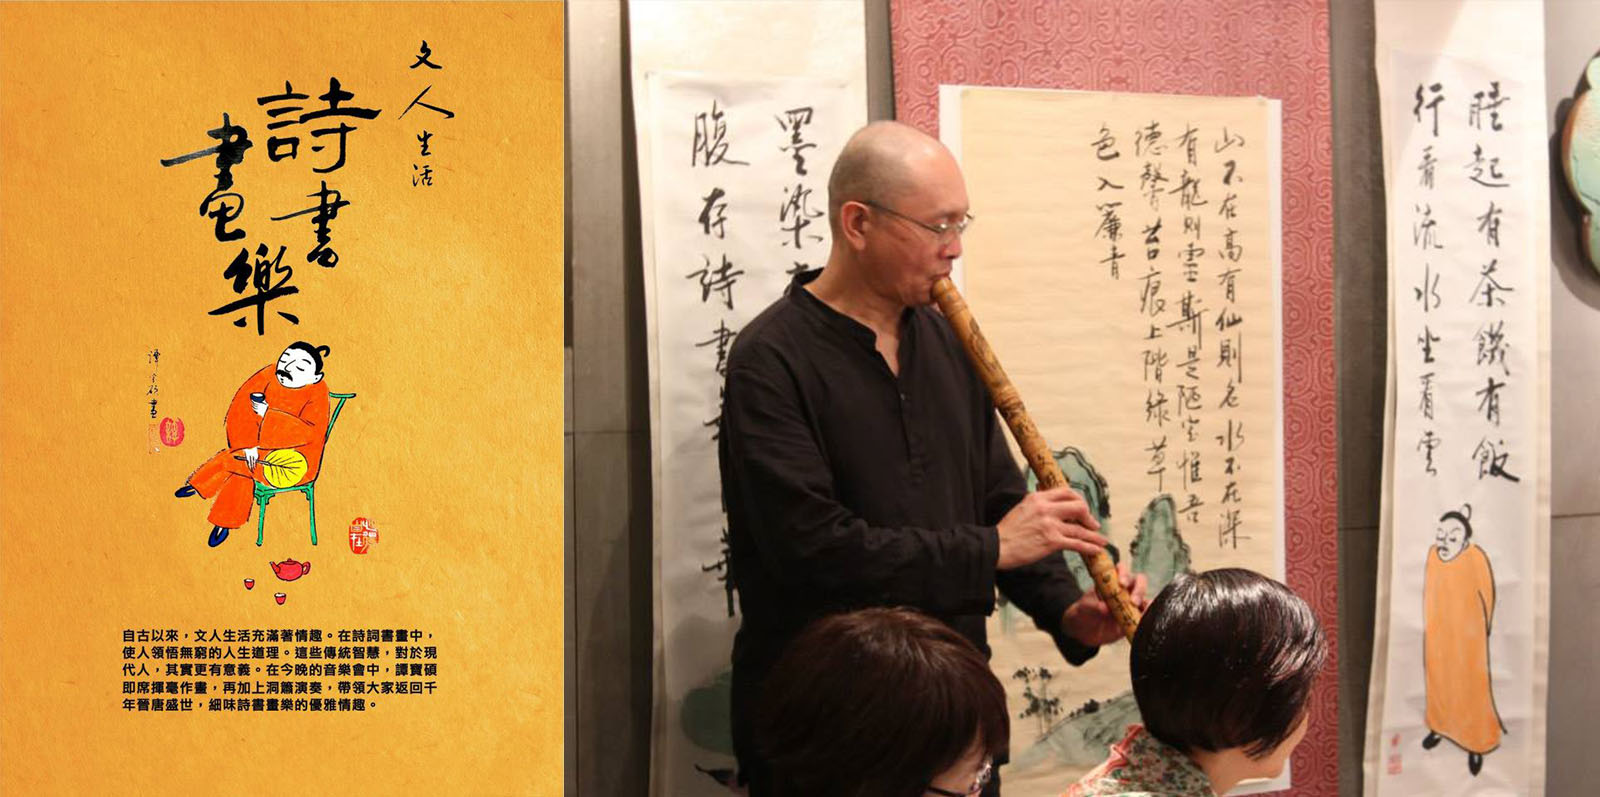 文人生活
詩書
畫樂
譚寶碩畫
自在
自古以來，文人生活充滿著情趣。在詩詞書畫中，
使人領悟無窮的人生道理。這些傳統智慧，對於現
代人，其實更有意義。在今晚的音樂會中，譚寶碩
即席揮毫作畫，再加上洞簫演奏，帶領大家返回千
年晉唐盛世，細味詩書畫樂的優雅情趣。
墨染
腹存詩書
山不在高有仙則名水不在深
有龍則靈斯是陋室惟吾
德馨苔痕上階綠草
色入簾青
睡起有茶饑有飯
行看流水坐看雲